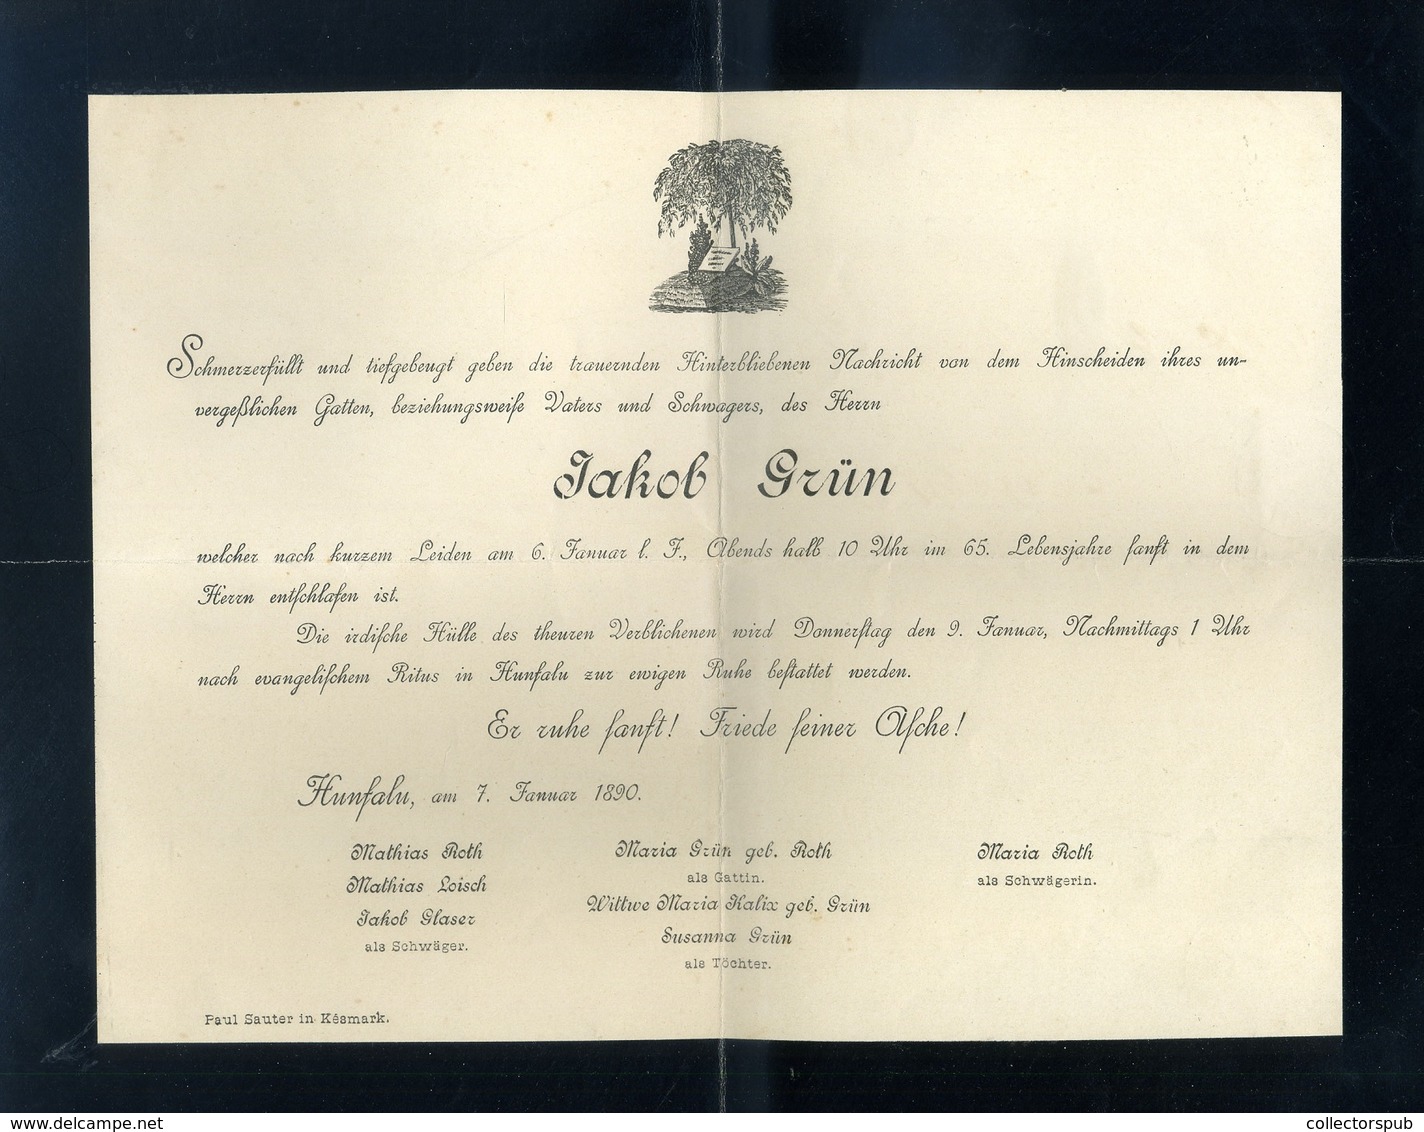 Schmerzerfüllt und tiefgebeugt geben die trauernden Hinterbliebenen Nachricht von dem Hinscheiden ihres un-
vergeßlichen Gatten, beziehungsweiſe Vaters und Schwagers, des Herrn
Jakob Grün
welcher nach kurzem Leiden am 6. Januar l. J., Abends halb 10 Uhr im 65. Lebensjahre ſanft in dem
Herrn entſchlafen ist.
Die irdiſche Hülle des theuren Verblichenen wird Donnerſtag den 9. Januar, Nachmittags 1 Uhr
nach evangeliſchem Ritus in Hunfalu zur ewigen Ruhe beſtattet werden.
Er ruhe ſanft! Friede ſeiner Aſche!
Hunfalu, am 7. Januar 1890.
Mathias Roth
Mathias Loisch
Jakob Glaser
als Schwäger.
Maria Grün geb. Roth
als Gattin.
Wittwe Maria Kalix geb. Grün
Susanna Grün
als Töchter.
Maria Roth
als Schwägerin.
Paul Sauter in Késmark.
www.delcampe.net
collectorspub